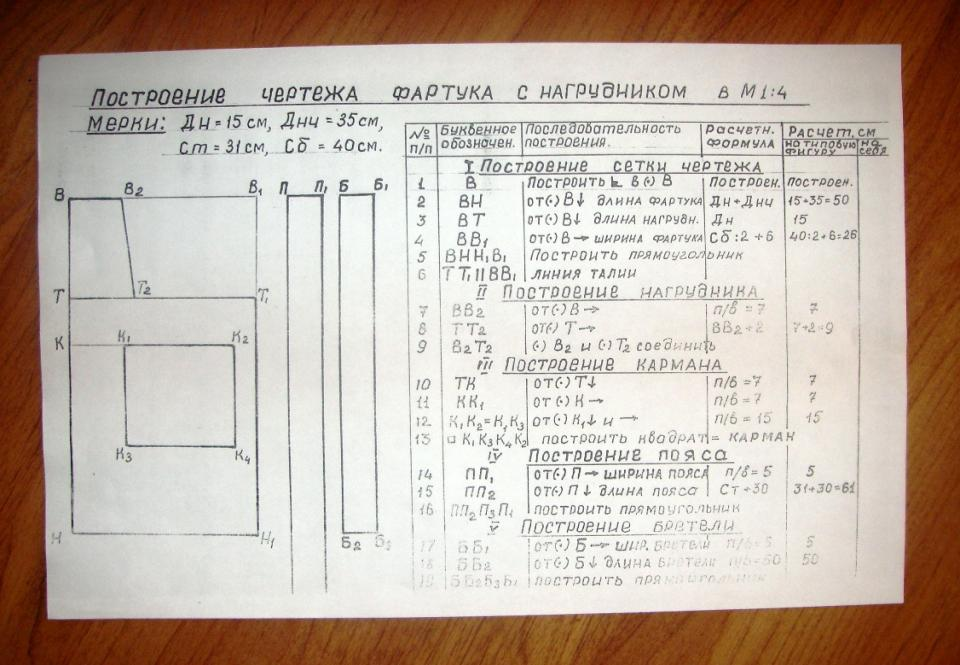 Построение чертежа фартука с нагрудником в М 1:4
Мерки: Дн=15 см, Днч=35см,
Ст=31 см, Сб=40 см.
В В2 В1 П П1 Б Б1
Т Т2 Т1
К К1 К2
К3 К4
Н Н1 Б2 Б3
№ п/п Буквенное обозначен. Последовательность построения. Расчетн. формула Расчет, см
на типовую фигуру на себя
I Построение сетки чертежа
1 В Построить ⊾ в (·) В Построен. построен.
2 ВН от(·) В↓ длина фартука Дн+Днч 15+35=50
3 ВТ от(·) В↓ длина нагрудн. Дн 15
4 ВВ1 от(·) В→ ширина фартука Сб:2+6 40:2+6=26
5 ВНН1В1 Построить прямоугольник
6 ТТ1||ВВ1 линия талии
II Построение нагрудника
7 ВВ2 от(·) В→ п/в=7 7
8 ТТ2 от(·) Т→ ВВ2+2 7+2=9
9 В2Т2 (·) В2 и (·) Т2 соединить
III Построение кармана
10 ТК от(·) Т↓ п/в=7 7
11 КК1 от(·) К→ п/в=7 7
12 К1К2=К1К3 от(·) К1↓ и → п/в=15 15
13 □ К1К3К4К2 построить квадрат= карман
IV Построение пояса
14 ПП1 от(·) П→ ширина пояса п/в=5 5
15 ПП2 от(·) П↓ длина пояса Ст+30 31+30=61
16 ПП2П3П1 построить прямоугольник
V Построение бретели
17 ББ1 от(·) Б→ шир. бретели п/в=5 5
18 ББ2 от(·) Б↓ длина бретели п/в=50 50
19 ББ2Б3Б1 построить прямоугольник